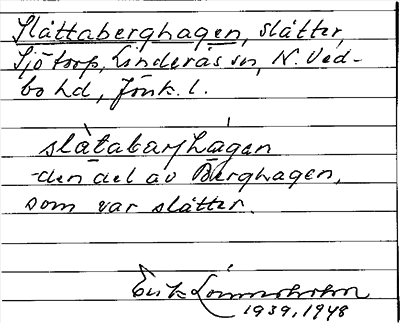 Slåttaberghagen, slåtter,
Sjötorp, Linderås sn, N. Ved-
bo hd, Jönk. l.
slàtabarjhágen
den del av Berghagen,
som var slåtter.
Erik Lönnerholm
1939, 1948